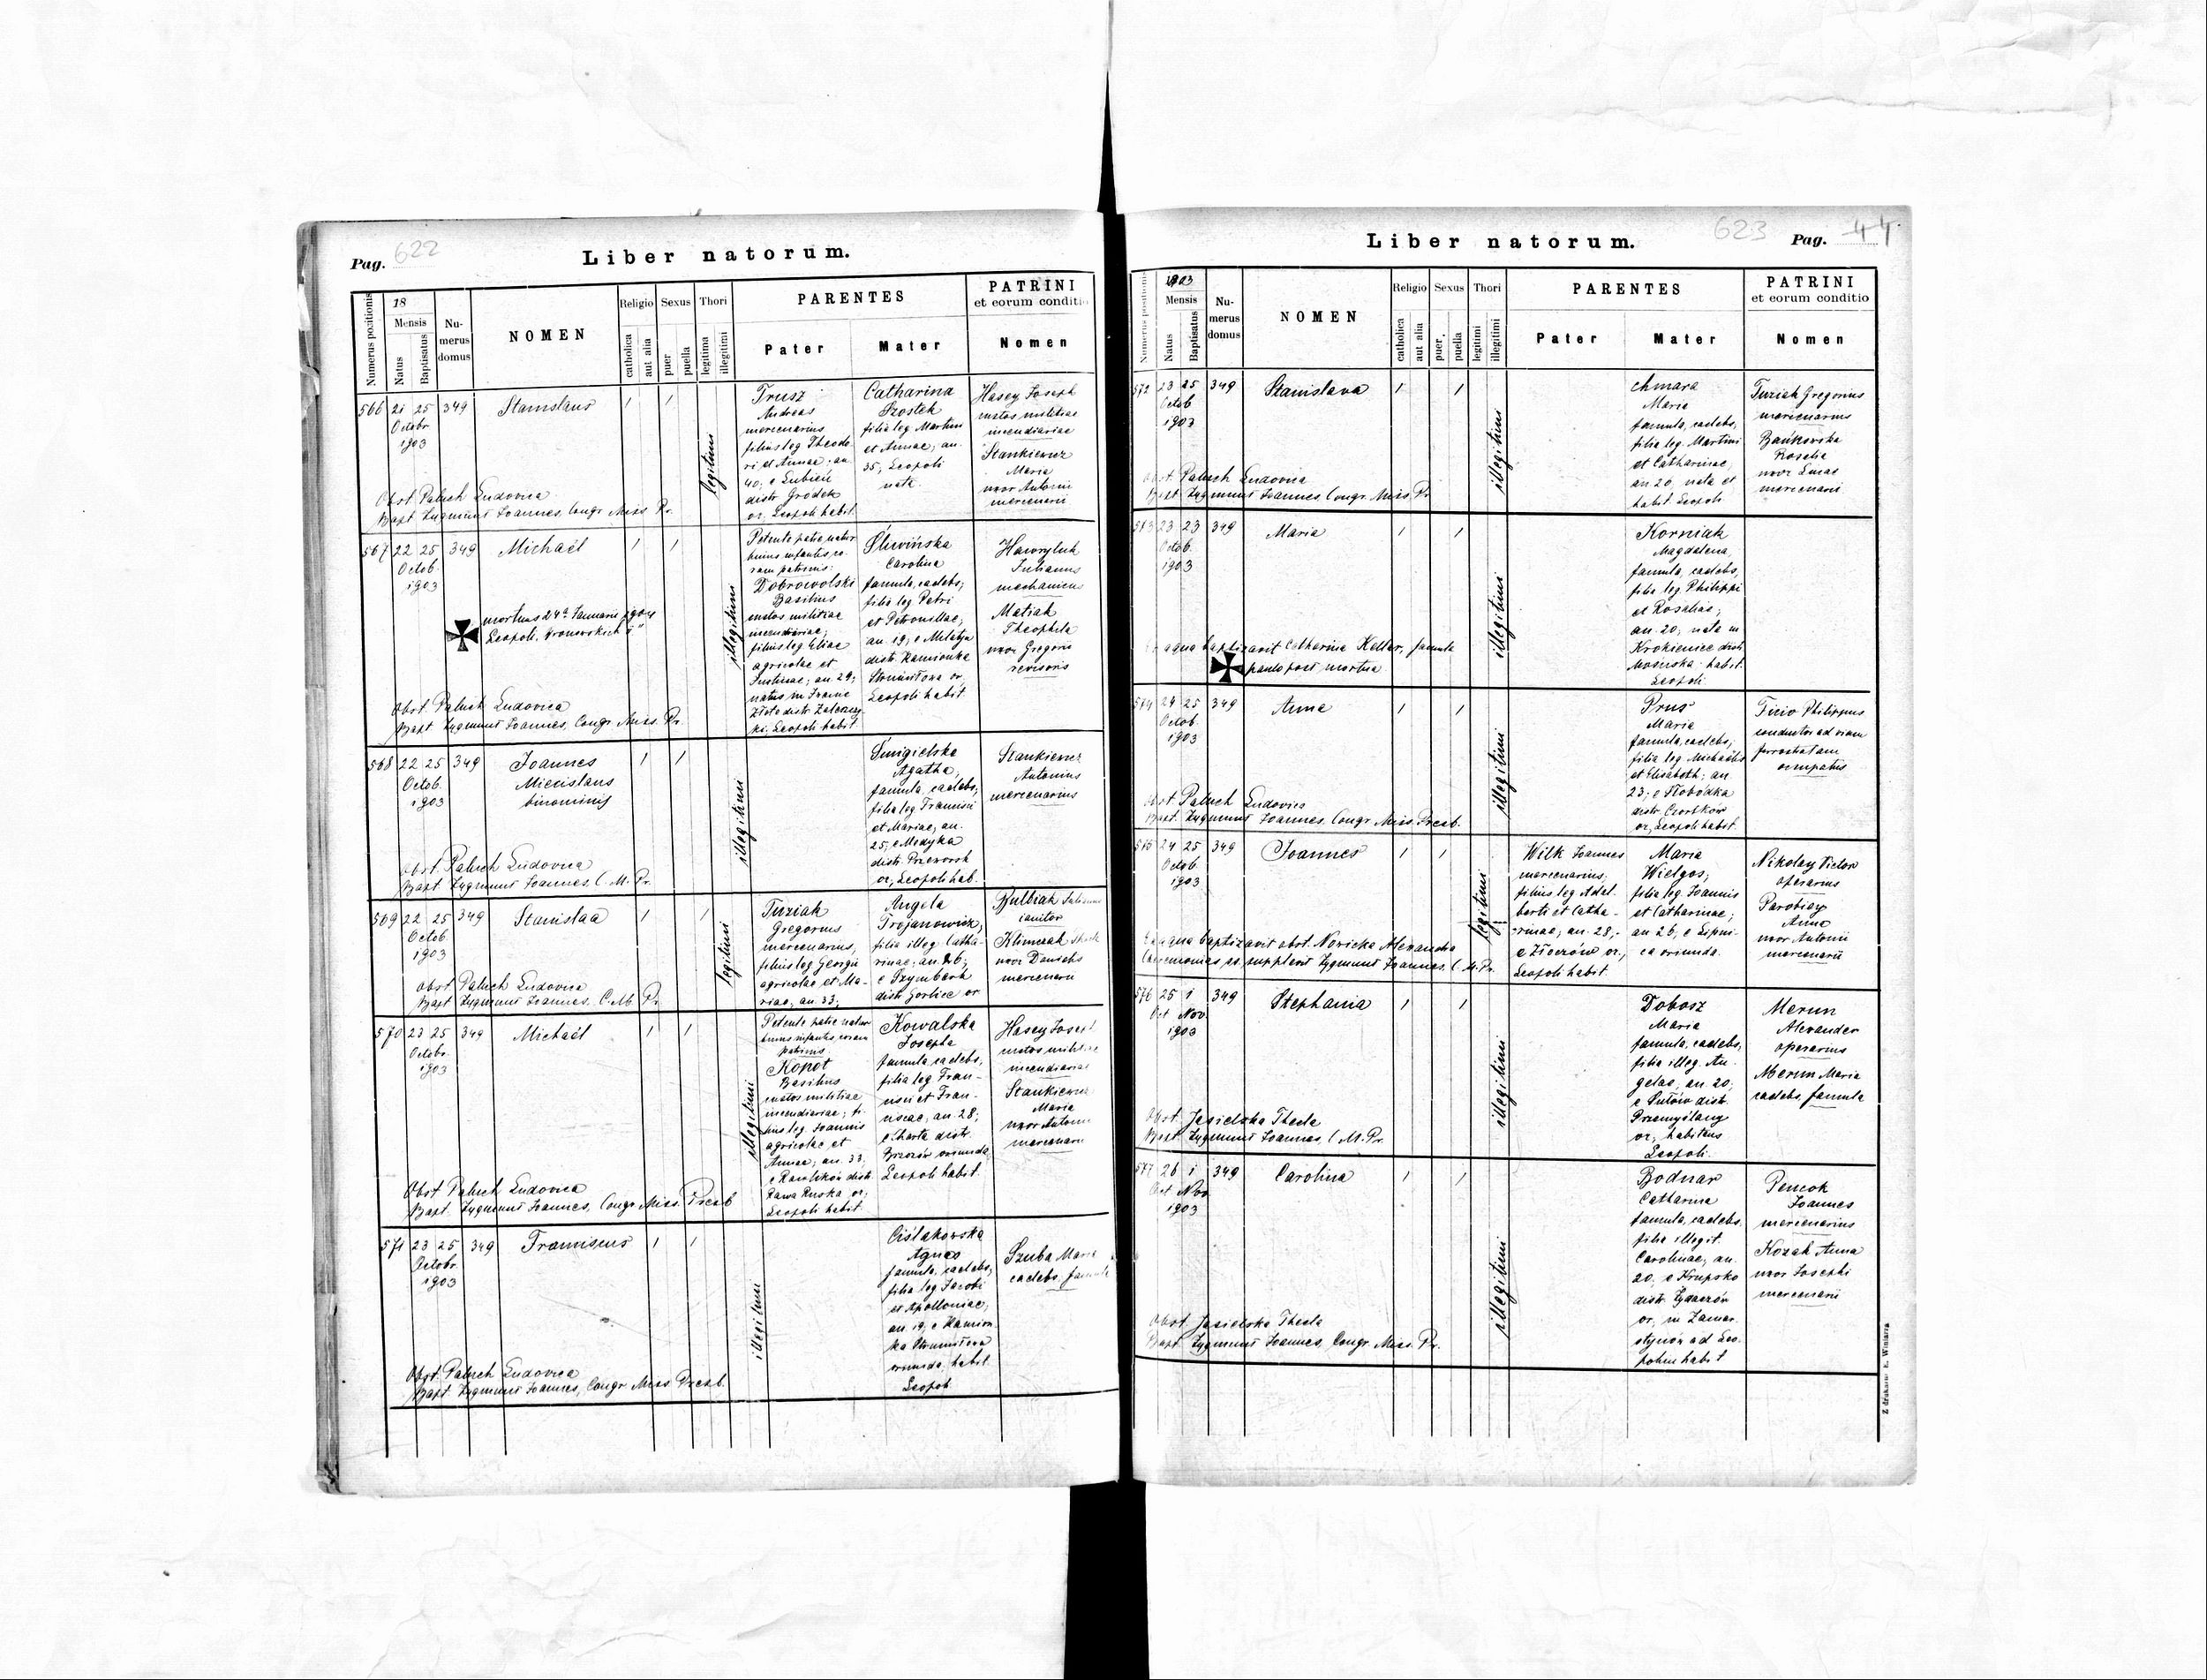 Pag. 622
Liber natorum.
Numerus positionis
18
Mensis
Natus
Baptisatus
Nu-
merus
domus
NOMEN
Religio
catholica
aut alia
Sexus
puer
puella
Thori
legitima
illegitimi
PARENTES
Pater
Mater
PATRINI
et eorum conditio
Nomen
566
21 25
Octobr
1903
349
Stanislaus
legitimi
Trusz
Andreas
mercenarius
filius leg Theodo
ri et Annae; an
40; e Lubień
distr Grodek
or. Leopoli habit.
Catharina
Szostek
filia leg Martini
et Annae; an.
35; Leopoli
nata.
Hasey Joseph
custos militiae
incendiariae
Stankiewicz
Maria
uxor Antonii
mercenarii
Obst. Paluch Ludovica
Bapt Zygmunt Joannes, Congr Miss Pr.
567
22 25
Octob.
1903
349
Michaël
illegitimi
mortuus 24ª Januarii 1904
Leopoli.
Petente patre natur
coram patrinis:
Dobrowolski
Basilius
custos militiae
incendiariae;
filius leg Eliae
agricolae et
Justinae; an. 29;
natus in
distr
Leopoli habit.
Śliwińska
Carolina
famula, caelebs,
filia leg Petri
et Petronillae;
an. 19; e
distr Kamionka
Strumiłowa or,
Leopoli habit.
Hawryluk
Julianus
mechanicus
Matiak
Theophila
uxor Gregorii
revisoris
Obst Paluch Ludovica
Bapt Zygmunt Joannes, Congr Miss. Pr.
568
22 25
Octob.
1903
349
Joannes
Miecislaus
binominis
illegitimi
Śmigielska
Agatha,
famula, caelebs,
filia leg Francisci
et Mariae, an.
25; e Medyka
distr Przeworsk
or; Leopoli hab.
Stankiewicz
Antonius
mercenarius
Obst. Paluch Ludovica
Bapt Zygmunt Joannes, C. M. Pr.
569
22 25
Octob.
1903
349
Stanislaa
legitimi
Tuziak
Gregorius
mercenarius,
filius leg Georgii
agricolae et Ma-
riae; an. 33;
Angela
Trojanowicz,
filia illeg. Catha-
rinae; an. 26;
e Szymbark
distr Gorlice or
Bulbiak
ianitor
Klimczak
uxor Danielis
mercenarii
Obst Paluch Ludovica
Bapt Zygmunt Joannes, C. M. Pr.
570
23 25
Octobr.
1903
349
Michaël
illegitimi
Petente patre natur
coram
patrinis
Kopot
Basilius
custos militiae
incendiariae; fi-
lius leg Joannis
agricolae et
Annae; an. 33,
distr.
Rawa Ruska or;
Leopoli habit
Kowalska
Josepha
famula, caelebs,
filia leg Fran-
cisci et Fran-
ciscae, an. 28;
e Charta distr.
Brzozów oriunda,
Leopoli habit.
Hasey Josef
custos militiae
incendiariae
Stankiewicz
Maria
uxor Antonii
mercenarii
Obst Paluch Ludovica
Bapt. Zygmunt Joannes, Congr Miss. Presb
571
23 25
Octobr.
1903
349
Franciscus
illegitimi
Ciślakowska
Agnes
famula, caelebs,
filia leg Jacobi
et Apolloniae,
an. 19; e Kamion-
ka Strumiłowa
oriunda, habit.
Leopoli
Szuba Maria
caelebs, famula
Obst. Paluch Ludovica
Bapt Zygmunt Joannes, Congr Miss Presb.
Liber natorum.
623
Pag. 44
Numerus positionis
1903
Mensis
Natus
Baptisatus
Nu-
merus
domus
NOMEN
Religio
catholica
aut alia
Sexus
puer.
puella
Thori
legitimi
illegitimi
PARENTES
Pater
Mater
PATRINI
et eorum conditio
Nomen
572
23 25
Octob
1903
349
Stanislava
illegitimi
Chmara
Maria
famula, caelebs,
filia leg. Martini
et Catharinae,
an 20, nata et
habit. Leopoli
Tuziak Gregorius
mercenarius
Bańkowska
Rosalia
uxor Lucae
mercenarii
Obst Paluch Ludovica
Bapt. Zygmunt Joannes, Congr. Miss. Pr.
573
23 23
Octob.
1903
349
Maria
illegitimi
Korniak
Magdalena,
famula, caelebs,
filia leg Philippi
et Rosaliae;
an. 20; nata in
Krokienice distr
Mościska habit.
Leopoli
Ex aqua baptizavit Catharina Keller, famula
paulo post mortua
574
24 25
Octob.
1903
349
Anna
illegitimi
Prus
Maria
famula, caelebs;
filia leg Michaëlis
et Elisabeth; an.
23; e Słobódka
distr Czortków
or, Leopoli habit.
Ticio Philippus
conductor ad viam
ferrostratam
occupatus
Obst. Paluch Ludovica
Bapt. Zygmunt Joannes, Congr. Miss. Presb.
575
24 25
Octob.
1903
349
Joannes
legitimi
Wilk Joannes
mercenarius;
filius leg Adal-
berti et Catha-
rinae; an. 28,
e Złoczów or,
Leopoli habit
Maria
Wielgos;
filia leg Joannis
et Catharinae;
an 26; e Lipni-
ca oriunda.
Nikolay Victor
operarius
Parobiay
Anna
uxor Antonii
mercenarii
Ex aqua baptizavit obst. Nowicka Alexandra
Caeremonias supplevit Zygmunt Joannes, C. M. Pr.
576
25 1
Oct Nov.
1903
349
Stephania
illegitimi
Dobosz
Maria
famula, caelebs,
filia illeg. An-
gelae, an. 20;
distr.
Przemyślany
or, habitans
Leopoli.
Merun
Alexander
operarius
Merun Maria
caelebs, famula
Obst. Jasielska Thecla
Bapt. Zygmunt Joannes, C. M. Pr.
577
26 1
Oct Nov
1903
349
Carolina
illegitimi
Bodnar
Catharina
famula, caelebs.
filia illegit.
Carolinae; an.
20. e Krupsko
distr Żydaczów
or; in Zamar-
stynów ad Leo-
polim habit
Pencok
Joannes
mercenarius
Kozak Anna
uxor Josephi
mercenarii
Obst. Jasielska Thecla
Bapt. Zygmunt Joannes, Congr. Miss. Pr.
Z drukarni E. Winiarza